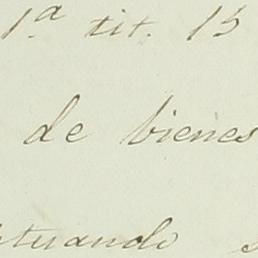 1.ª tit. 15
de bienes
tuando